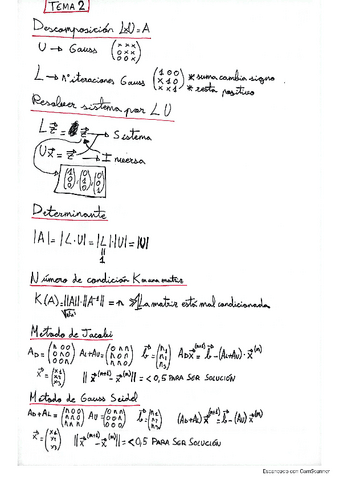 TEMA 2
Descomposición LxU=A
U → Gauss (x x x / 0 x x / 0 0 x)
L → nº iteraciones Gauss (1 0 0 / x 1 0 / x x 1) * suma cambia signo
* resta positivo
Resolver sistema por LU
L z⃗ = b⃗ → Sistema
U x⃗ = z⃗ → Inversa
(1 0 0), (0 1 0), (0 0 1)
Determinante
|A| = |L·U| = |L|·|U| = |U|
1
Número de condición K
K(A) = ||A||·||A⁻¹|| = n la matriz está mal condicionada
Metodo de Jacobi
A_D = (n 0 0 / 0 n 0 / 0 0 n) A_L+A_U = (0 n n / n 0 n / n n 0) b⃗ = (n₁ / n₂ / n₃) A_D x⃗⁽ᵐ⁺¹⁾ = b⃗ - (A_L+A_U)·x⃗⁽ᵐ⁾
x⃗ = (x₁ / x₂ / x₃) || x⃗⁽ᵐ⁺¹⁾ - x⃗⁽ᵐ⁾ || = < 0,5 PARA SER SOLUCIÓN
Metodo de Gauss Seidel
A_D+A_L = (n 0 0 / n n 0 / n n n) A_U = (0 n n / 0 0 n / 0 0 0) b⃗ = (n₁ / n₂ / n₃) (A_D+A_L) x⃗⁽ᵐ⁺¹⁾ = b⃗ - (A_U) x⃗⁽ᵐ⁾
x⃗ = (x₁ / x₂ / x₃) || x⃗⁽ᵐ⁺¹⁾ - x⃗⁽ᵐ⁾ || = < 0,5 PARA SER SOLUCIÓN
Escaneado con CamScanner